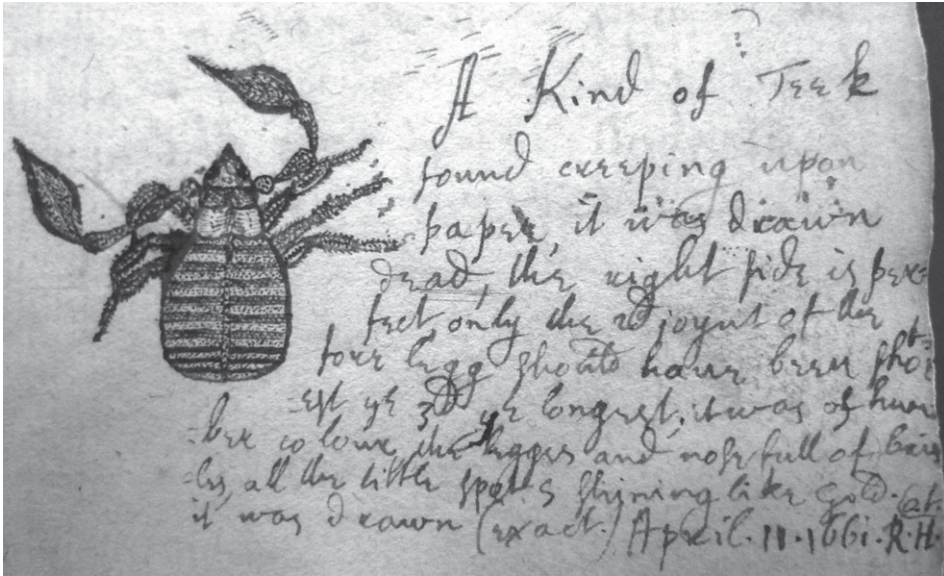 A Kind of Teek
found creeping upon
paper, it was drawn
dead, the right side is per=
fect only the 2d joynt of the
fore legg should have been shor=
-est ye 3d ye longest, it was of
-ber colour, the legges and nose full of
-les, all the little spots shining like gold.
it was drawn (exact.) April. 11. 1661. R.H.